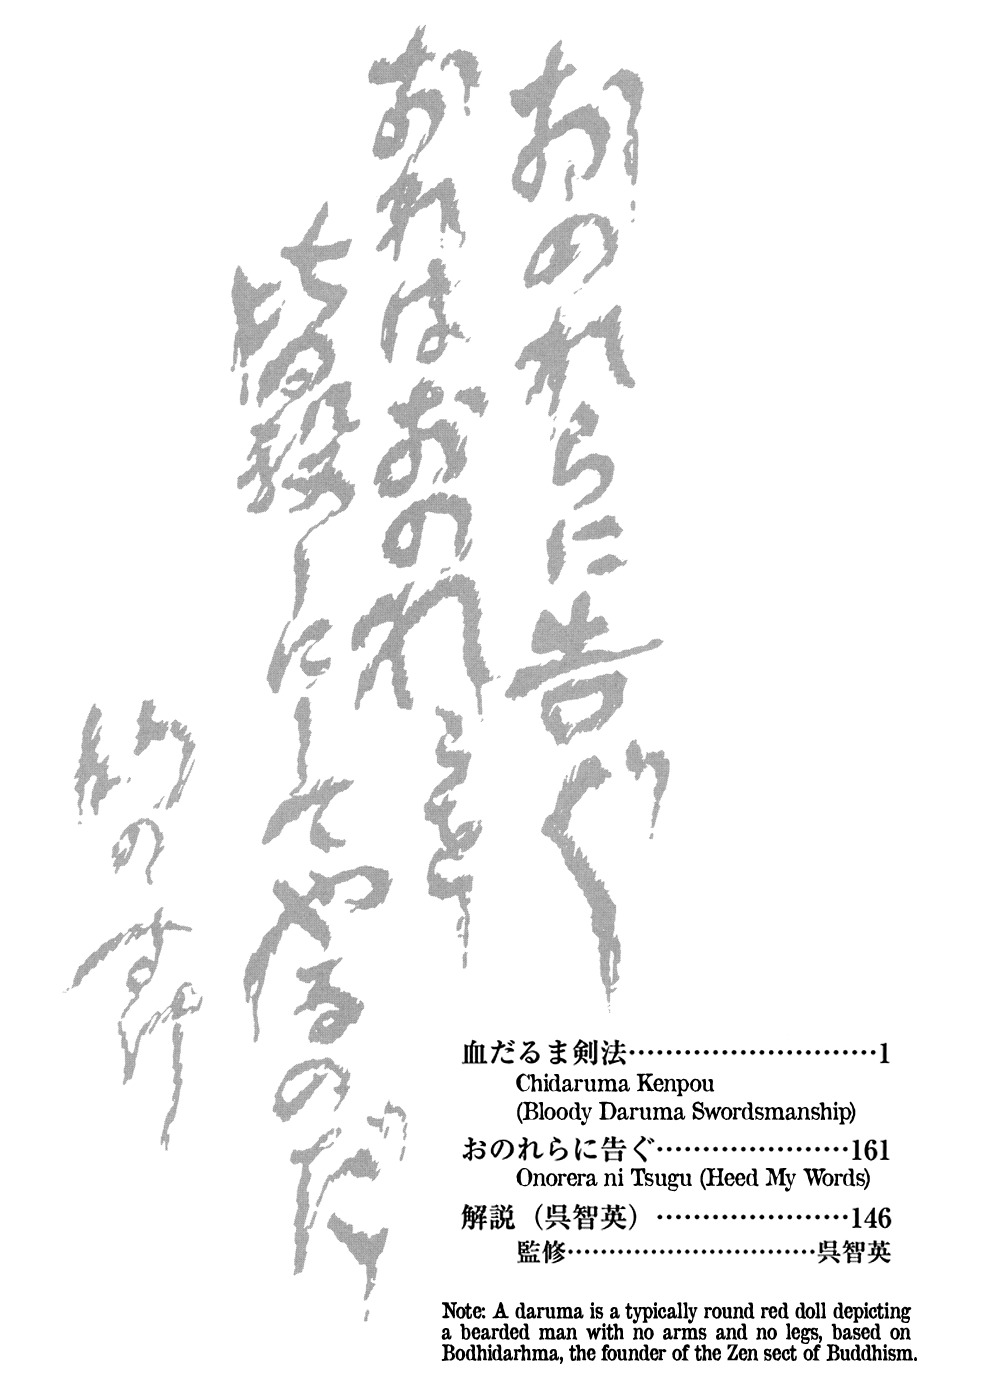 おのれらに告ぐ
おれはおのれらを
皆殺しにしてやるのだ
幻之介
血だるま剣法…………………………1
Chidaruma Kenpou
(Bloody Daruma Swordsmanship)
おのれらに告ぐ…………………161
Onorera ni Tsugu (Heed My Words)
解説（呉智英）…………………146
監修…………………………呉智英
Note: A daruma is a typically round red doll depicting
a bearded man with no arms and no legs, based on
Bodhidarhma, the founder of the Zen sect of Buddhism.